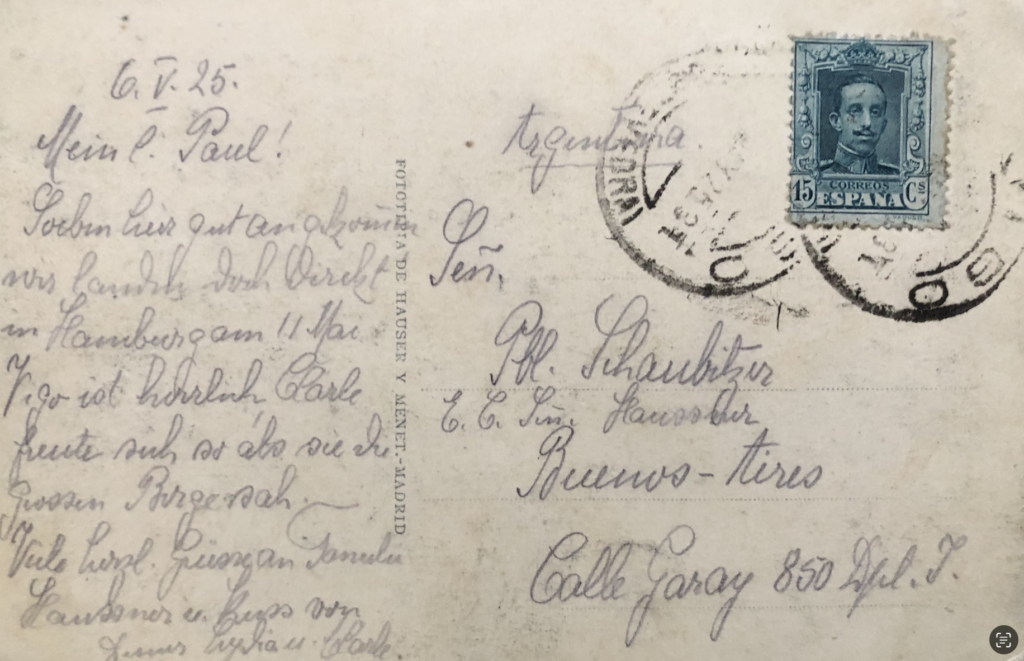 6. V. 25.
Mein l. Paul!
Soeben hier gut angekommen
wir landen doch direkt
in Hamburg am 11 Mai
Vigo ist herrlich Clärle
freute sich so als sie die
grossen Berge sah. –
Viele herzl. Grüsse an Familie
Haussner u. Kuss von
Deiner Lydia u. Clärle.
FOTOTIPIA DE HAUSER Y MENET.-MADRID
Argentina.
Señ.
Pbl. Schaubitzer
E. C. Señ.
Buenos-Aires
Calle Garay 850 Dpl. I.
15 CORREOS Cs
ESPAÑA
VIGO